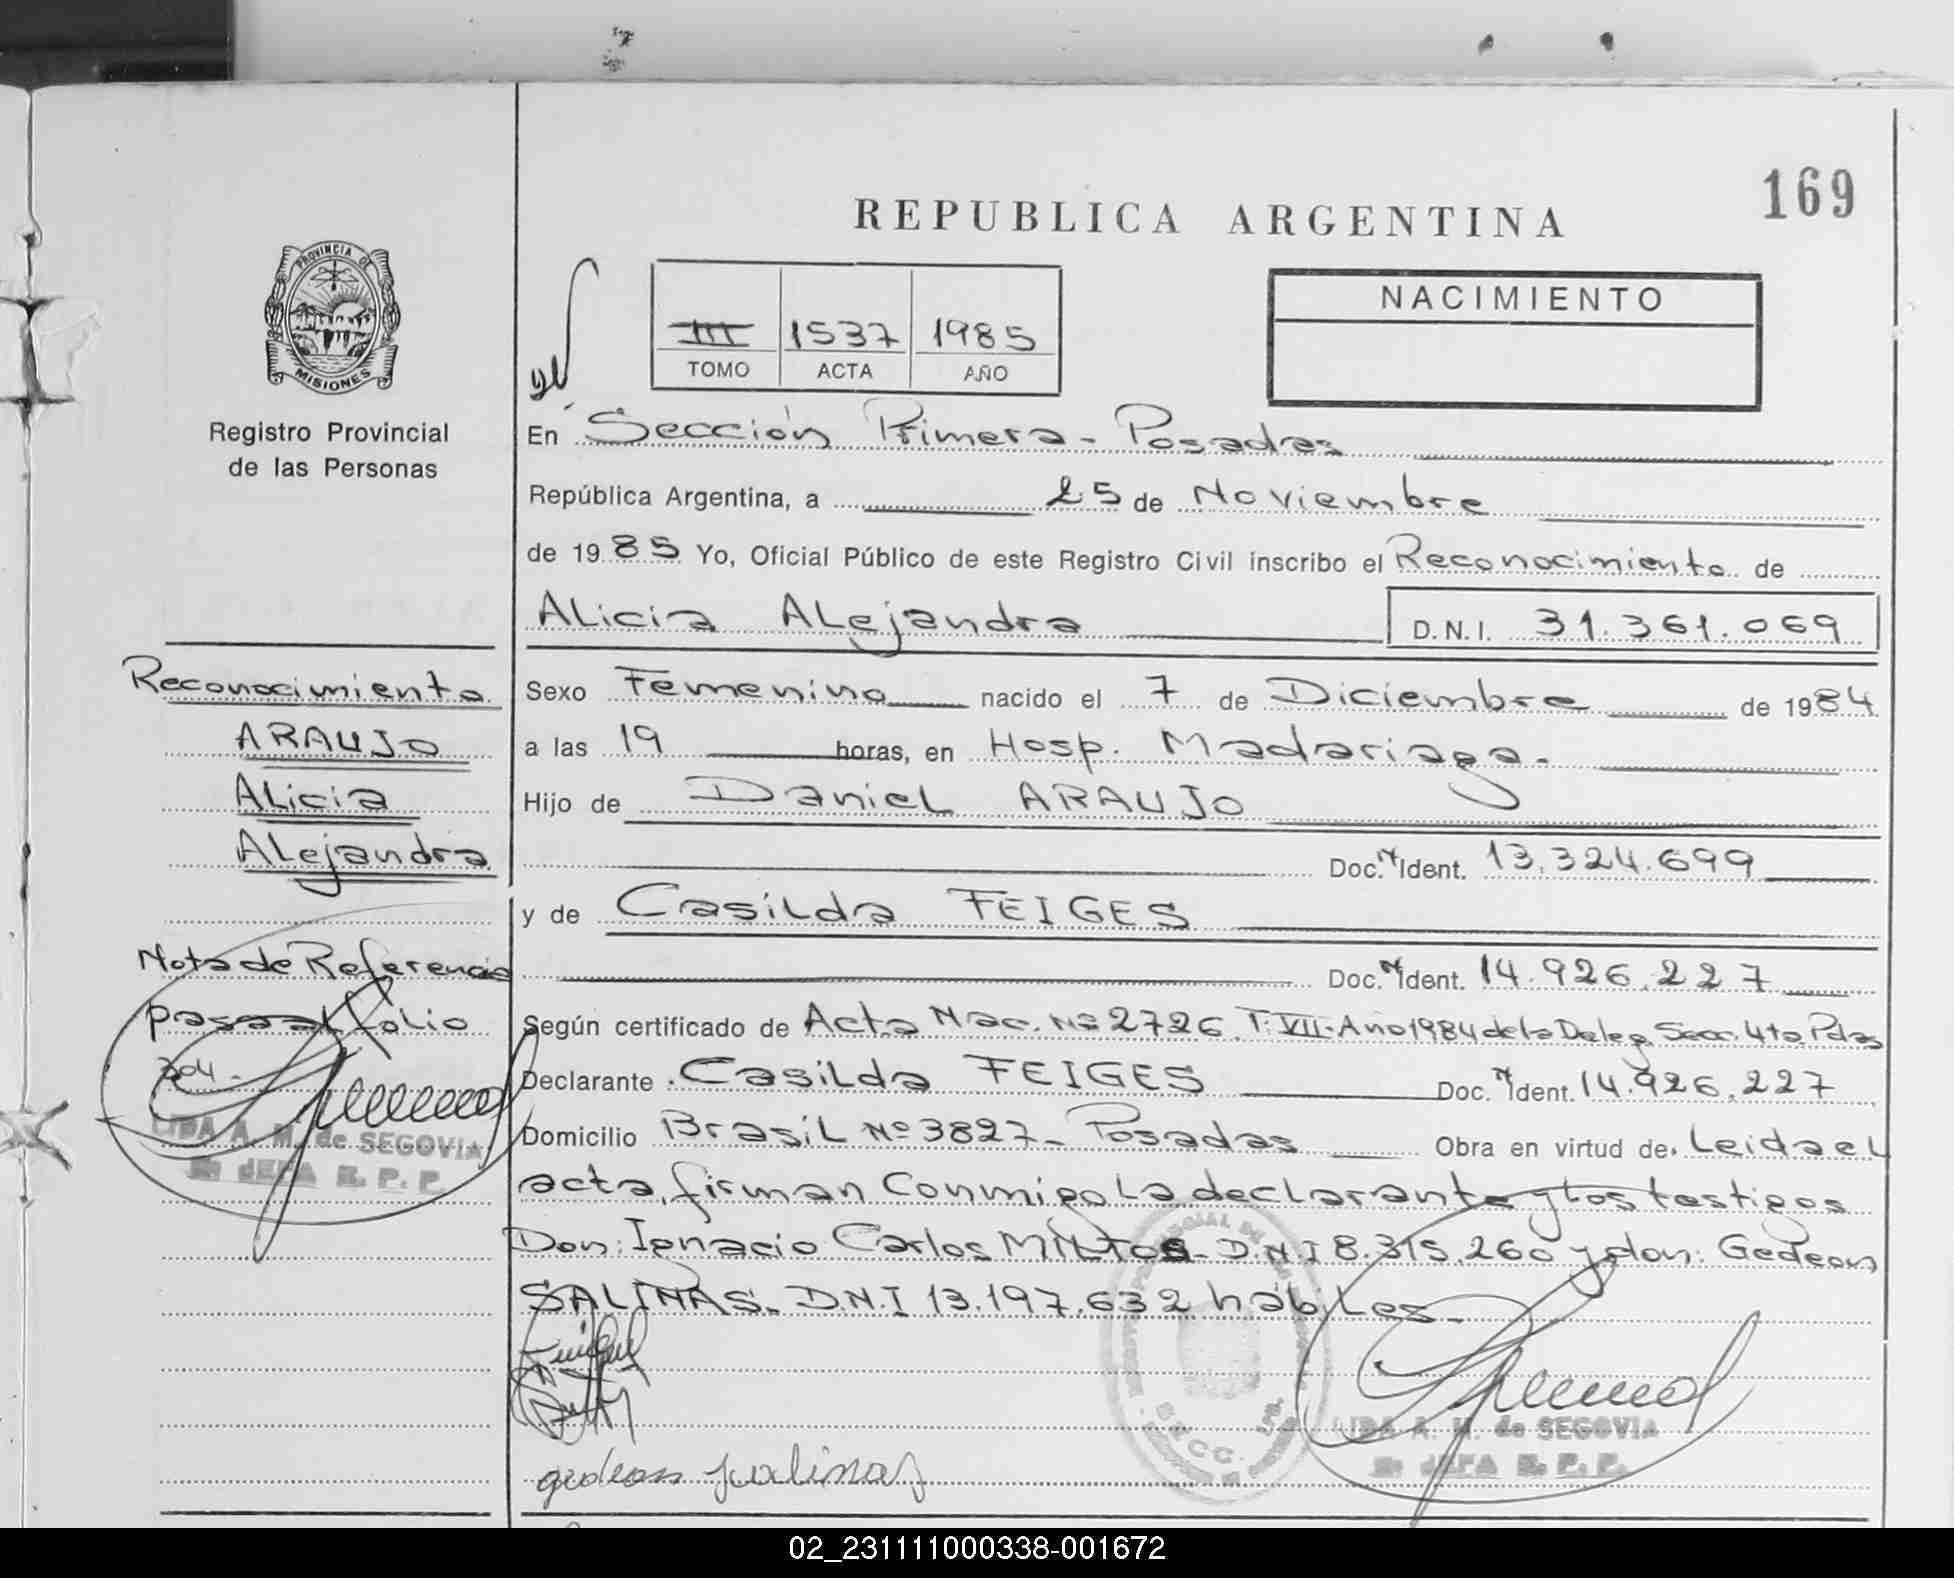 169
REPUBLICA ARGENTINA
PROVINCIA DE
MISIONES
Registro Provincial
de las Personas
III 1537 1985
TOMO ACTA AÑO
NACIMIENTO
En Sección Primera - Posadas
República Argentina, a 25 de Noviembre
de 1985 Yo, Oficial Público de este Registro Civil inscribo el Reconocimiento de
Alicia Alejandra D.N.I. 31.361.069
Reconocimiento
ARAUJO
Alicia
Alejandra
Sexo Femenino nacido el 7 de Diciembre de 1984
a las 19 horas, en Hosp. Madariaga.
Hijo de Daniel ARAUJO
Doc. N Ident. 13.324.699
y de Casilda FEIGES
Doc. N Ident. 14.926.227
Nota de Referencia
pasa al folio
204.
LIDA A. M. de SEGOVIA
JEFA R. P. P.
Según certificado de Acta Nac. Nº 2726. T. VII. Año 1984 de la Deleg. Secc. 4ta Pdas
Declarante Casilda FEIGES Doc. N Ident. 14.926.227
Domicilio Brasil Nº 3827 - Posadas Obra en virtud de. Leida el
acta, firman conmigo la declarante y los testigos
Don: Ignacio Carlos MIÑTOS. D.N.I 8.315.260 y don: Gedeon
SALINAS. D.N.I 13.197.632 hábiles.
gedeon salinas
LIDA A. M. de SEGOVIA
JEFA R. P. P.
02_231111000338-001672